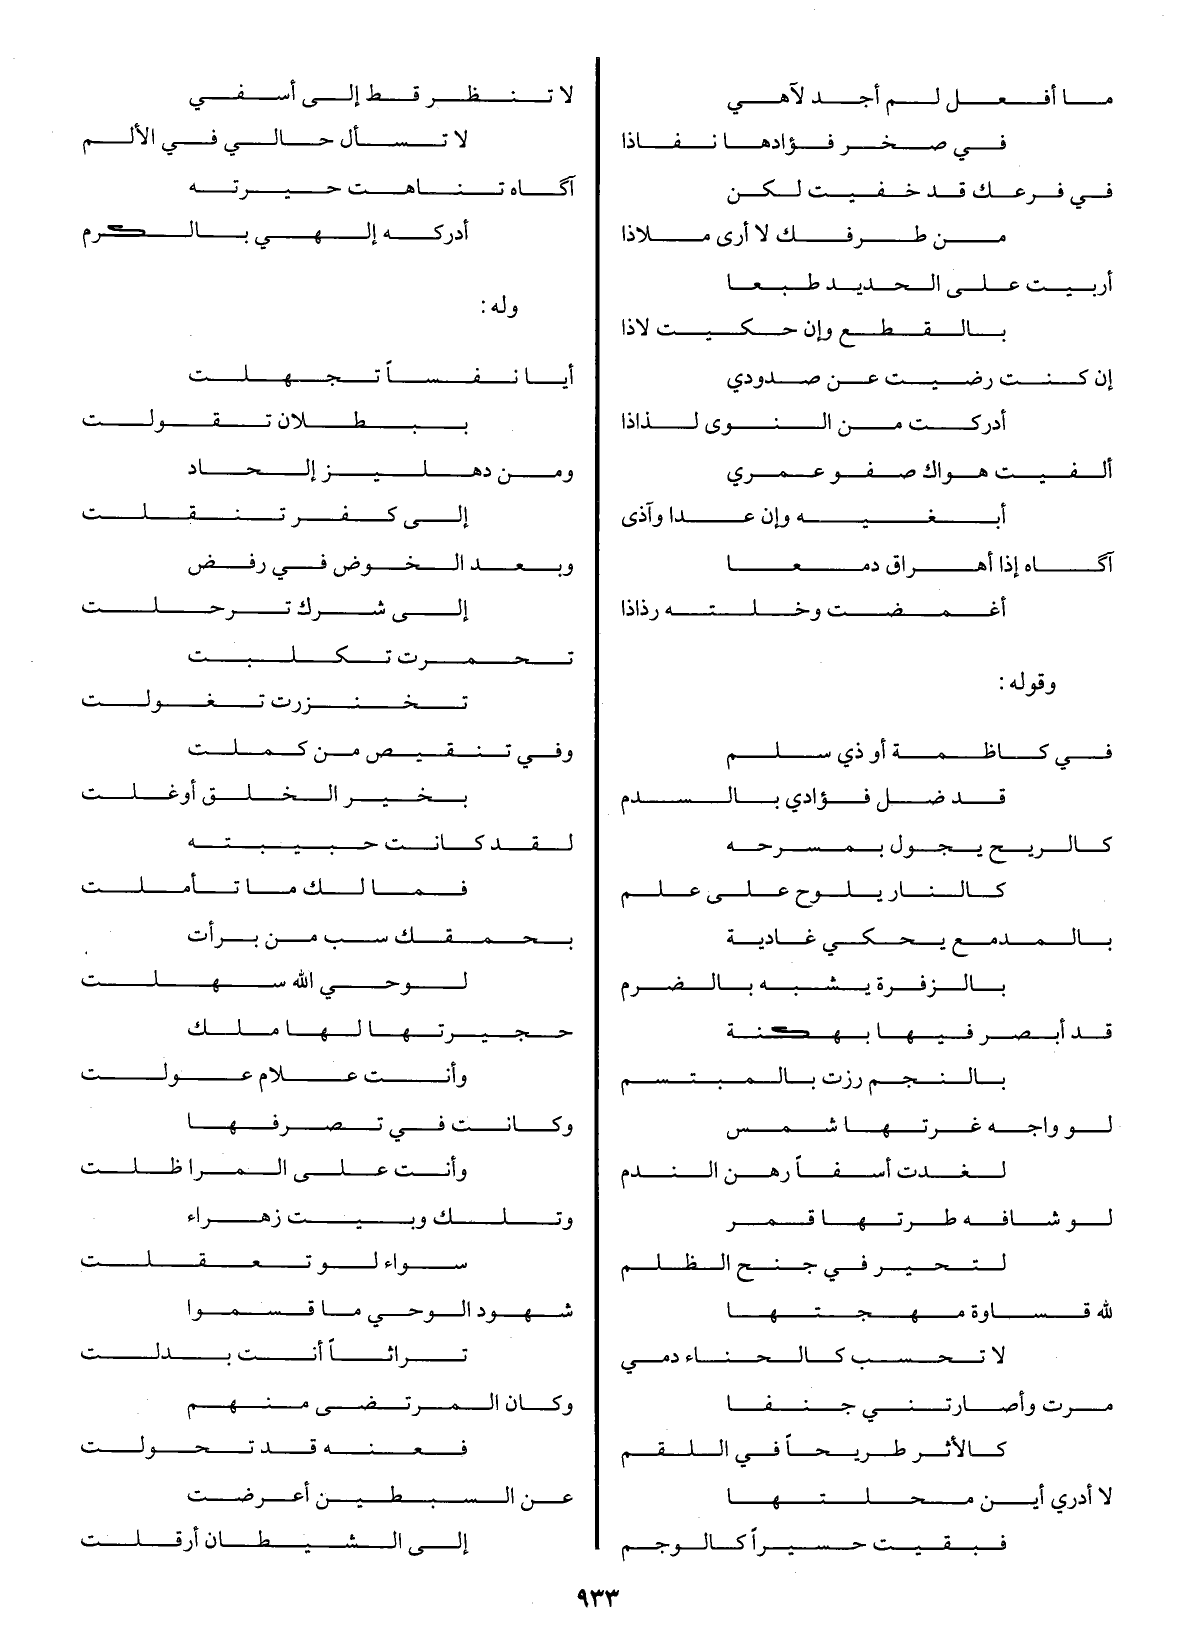 ما أفعل لم أجد لآهي
في صخر فؤادها نفاذا
في فرعك قد خفيت لكن
من طرفك لا أرى ملاذا
أربيت على الحديد طبعا
بالقطع وإن حكيت لاذا
إن كنت رضيت عن صدودي
أدركت من النوى لذاذا
ألفيت هواك صفو عمري
أبغيه وإن عدا وآذى
آگاه إذا أهراق دمعا
أغمضت وخلته رذاذا
وقوله:
في كاظمة أو ذي سلم
قد ضل فؤادي بالسدم
كالريح يجول بمسرحه
كالنار يلوح على علم
بالمدمع يحكي غادية
بالزفرة يشبه بالضرم
قد أبصر فيها بهكنة
بالنجم رزت بالمبتسم
لو واجه غرتها شمس
لغدت أسفاً رهن الندم
لو شافه طرتها قمر
لتحير في جنح الظلم
لله قساوة مهجتها
لا تحسب كالحناء دمي
مرت وأصارتني جنفا
كالأثر طريحاً في اللقم
لا أدري أين محلتها
فبقيت حسيراً كالوجم
لا تنظر قط إلى أسفي
لا تسأل حالي في الألم
آگاه تناهت حيرته
أدركه إلهي بالكرم
وله:
أيا نفساً تجهلت
ببطلان تقولت
ومن دهليز إلحاد
إلى كفر تنقلت
وبعد الخوض في رفض
إلى شرك ترحلت
تحمرت تكلبت
تخنزرت تغولت
وفي تنقيص من كملت
بخير الخلق أوغلت
لقد كانت حبيبته
فما لك ما تأملت
بحمقك سب من برأت
لوحي الله سهلت
حجيرتها لها ملك
وأنت علام عولت
وكانت في تصرفها
وأنت على المرا ظلت
وتلك وبيت زهراء
سواء لو تعقلت
شهود الوحي ما قسموا
تراثاً أنت بدلت
وكان المرتضى منهم
فعنه قد تحولت
عن السبطين أعرضت
إلى الشيطان أرقلت
٩٣٣